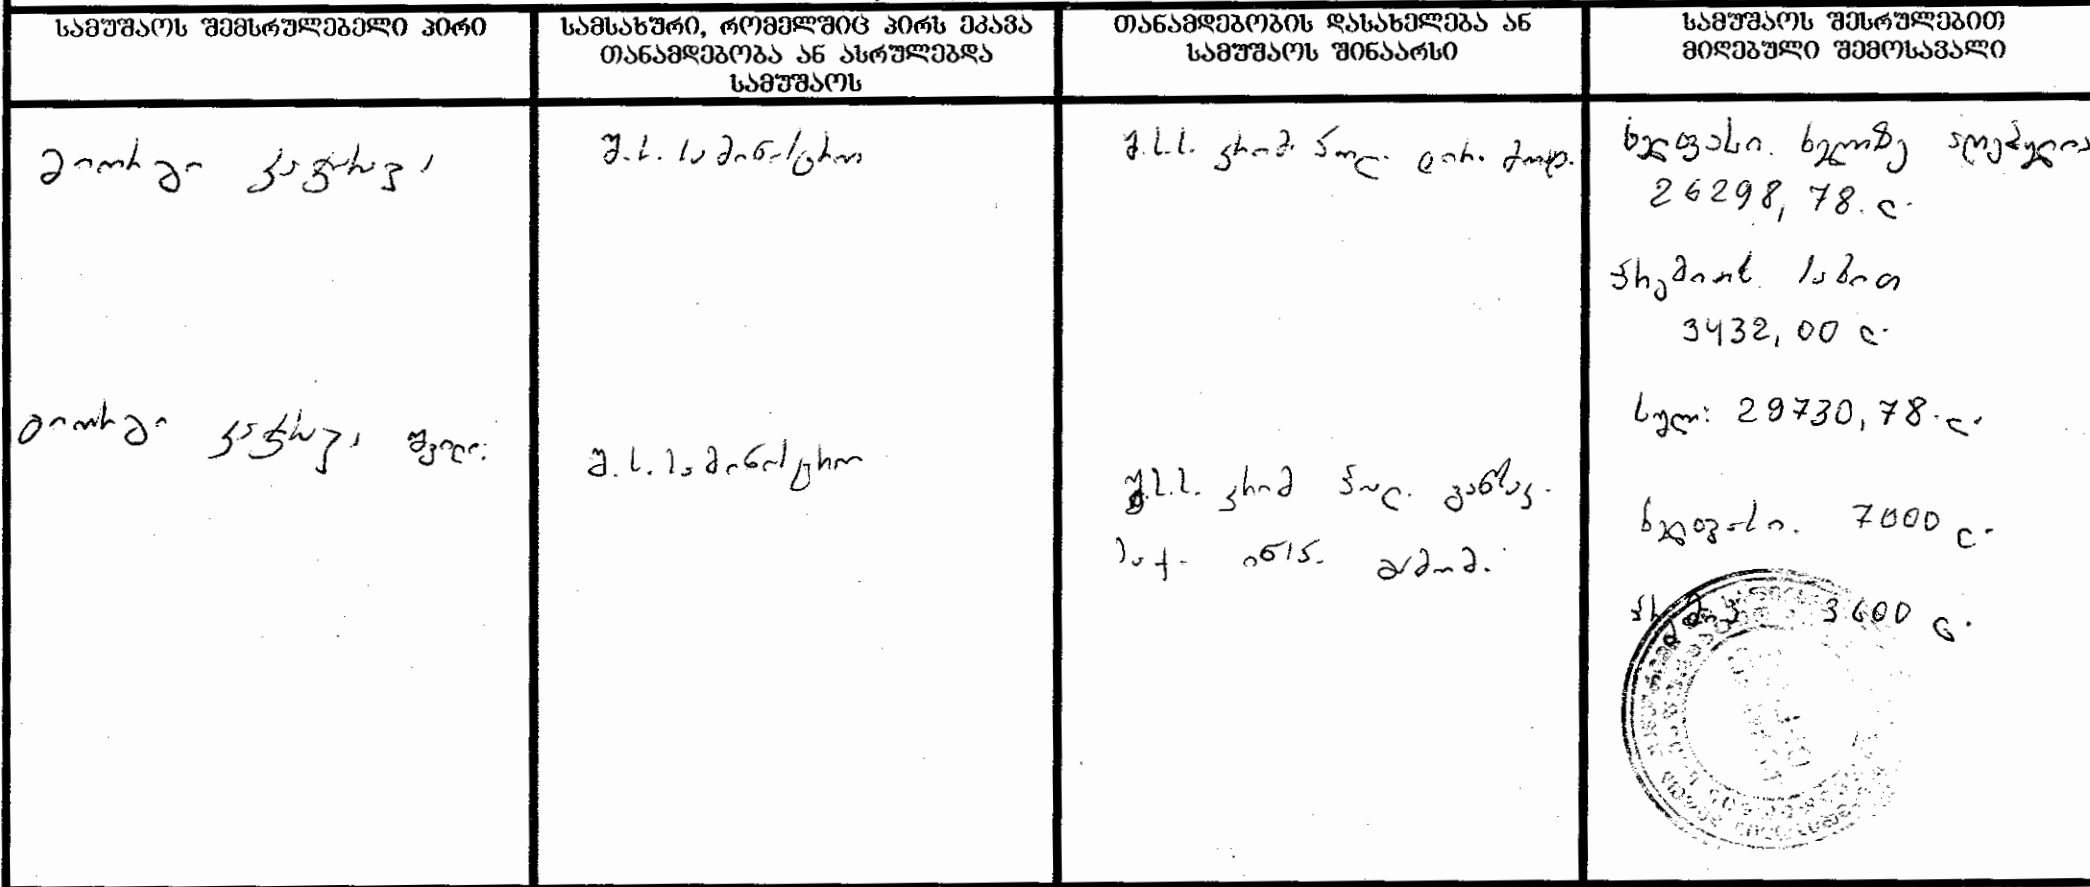 სამუშაოს შემსრულებელი პირი
სამსახური, რომელშიც პირს ეკავა
თანამდებობა ან ასრულებდა
სამუშაოს
თანამდებობის დასახელება ან
სამუშაოს შინაარსი
სამუშაოს შესრულებით
მიღებული შემოსავალი
გიორგი
შ.ს. სამინისტრო
შ.ს.ს. კრიმ. პოლ. დირ. მოად.
ხელფასი. ხელზე აღებული
26298,78.ლ.
პრემიის სახით
3432,00 ლ.
სულ: 29730,78.ლ.
გიორგი შვილი:
შ.ს. სამინისტრო
შ.ს.ს. კრიმ პოლ. განსაკ.
საქ. ინს. გამომ.
ხელფასი. 7000 ლ.
3600 ლ.